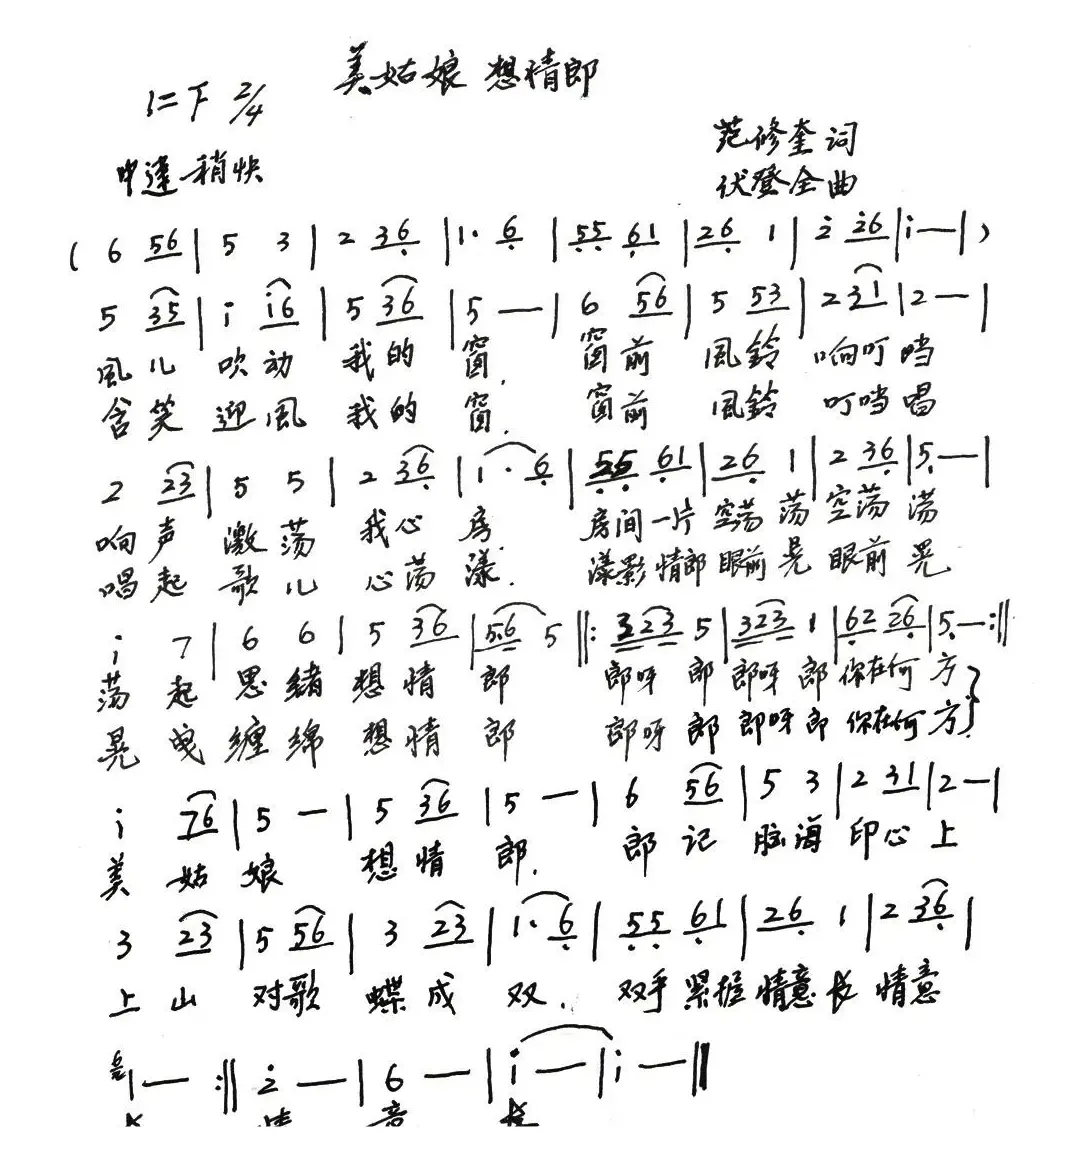 美姑娘 想情郎
1=F 2/4
范修奎词
中速 稍快
伏登全曲
( 6 56 | 5 3 | 2 36 | 1· 6 | 55 61 | 26 1 | 2 26 | i — | )
5 35 | i i6 | 5 36 | 5 — | 6 56 | 5 53 | 2 31 | 2 — |
風儿 吹动 我的 窗. 窗前 風鈴 响叮 当
含笑 迎風 我的 窗. 窗前 風鈴 叮当 唱
2 23 | 5 5 | 2 36 | 1· 6 | 55 61 | 26 1 | 2 36 | 5 — |
响声 激荡 我心 房. 房间一片 空荡 荡 空荡 荡
唱起 歌儿 心荡 漾. 漾影情郎 眼前 晃 眼前 晃
i 7 | 6 6 | 5 36 | 56 5 ‖: 323 5 | 323 1 | 62 26 | 5 — :‖
荡起 思绪 想情 郎 郎呀 郎 郎呀 郎 你在何 方
晃曳 缠绵 想情 郎 郎呀 郎 郎呀 郎 你在何 方
i 76 | 5 — | 5 36 | 5 — | 6 56 | 5 3 | 2 31 | 2 — |
美姑 娘 想情 郎. 郎记 脑海 印心 上
3 23 | 5 56 | 3 23 | 1· 6 | 55 61 | 26 1 | 2 36 |
上山 对歌 蝶成 双. 双手紧握 情意 长 情意
1 — :‖ 2 — | 6 — | i — | i — ‖
长 情 意 长